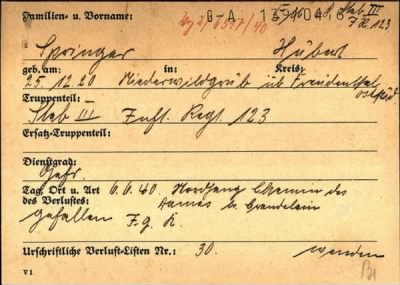 Familien- u. Vorname: G-A 139/046 Stab III
wg 2/8397/40 J.R. 123
Springer Hubert
geb. am: in: Kreis:
25.12.20 Niederwildgrub üb Freudenthal
Truppenteil:
Stab III Inft. Regt. 123
Ersatz-Truppenteil:
Dienstgrad:
Gefr.
Tag, Ort u. Art 6.6.40 Nordhang Chemin des
des Verlustes: Dames b. Grandelain
gefallen J.G.K.
Urschriftliche Verlust-Listen Nr.: 30. wenden
V1